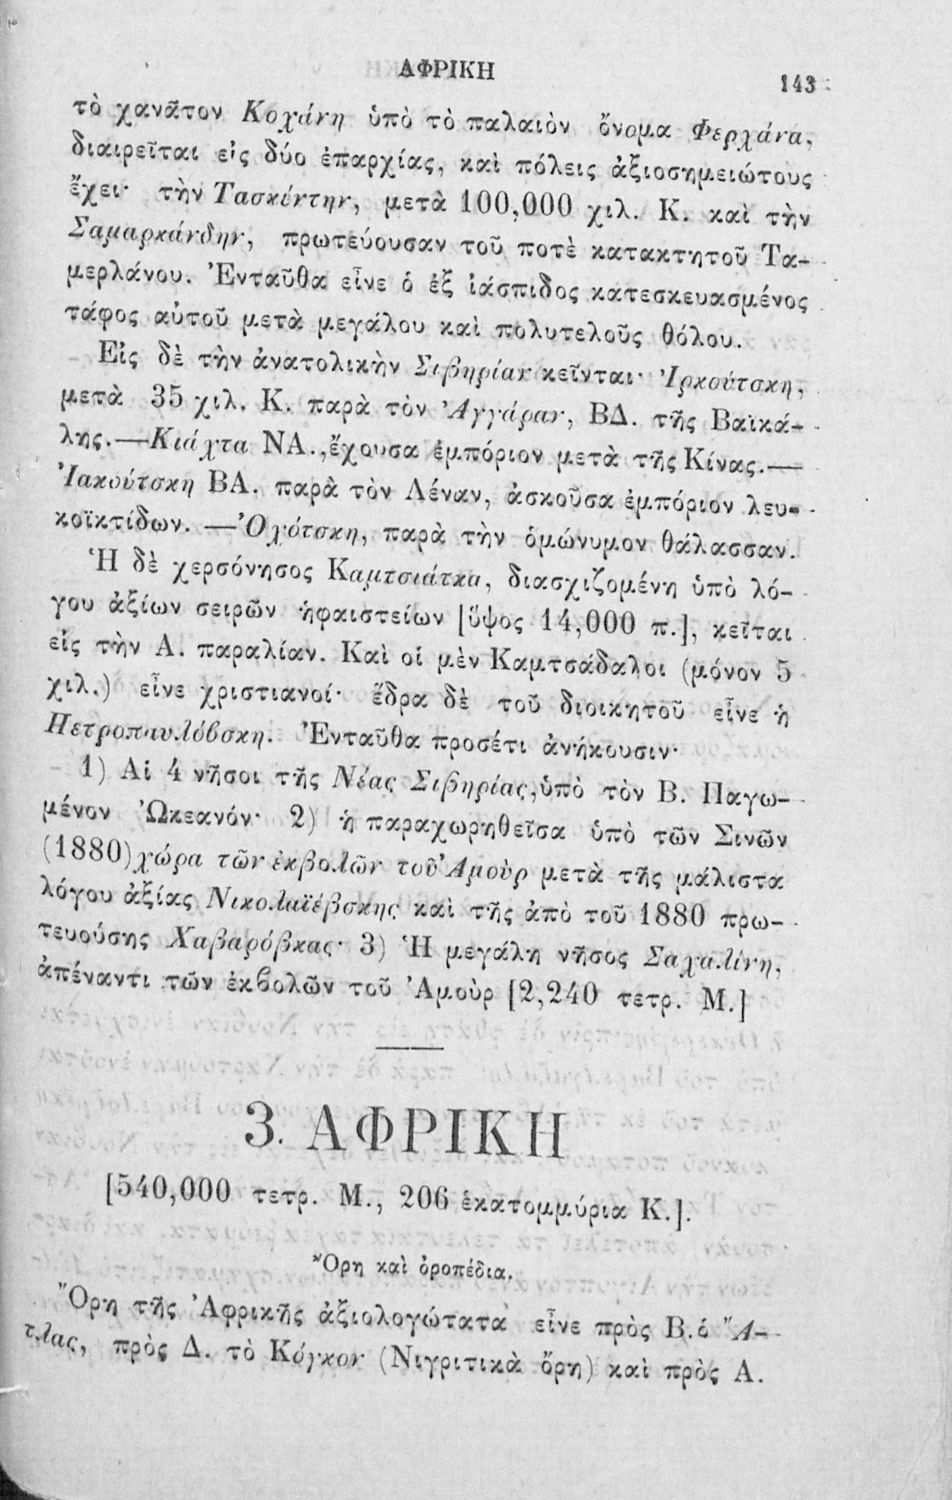 ΑΦΡΙΚΗ 143
τὸ χανᾶτον Κοχάνη ὑπὸ τὸ παλαιὸν ὄνομα Φερχάνα,
διαιρεῖται εἰς δύο ἐπαρχίας, καὶ πόλεις ἀξιοσημειώτους
ἔχει· τὴν Τασκέντην, μετὰ 100,000 χιλ. Κ. καὶ τὴν
Σαμαρκάνδην, πρωτεύουσαν τοῦ ποτὲ κατακτητοῦ Τα-
μερλάνου. Ἐνταῦθα εἶνε ὁ ἐξ ἰάσπιδος κατεσκευασμένος
τάφος αὐτοῦ μετὰ μεγάλου καὶ πολυτελοῦς θόλου.
Εἰς δὲ τὴν ἀνατολικὴν Σιβηρίαν κεῖνται· Ἰρκούτσκη,
μετὰ 35 χιλ. Κ. παρὰ τὸν Ἀγγάραν, ΒΔ. τῆς Βαϊκά-
λης.—Κιάχτα ΝΑ.,ἔχουσα ἐμπόριον μετὰ τῆς Κίνας.—
Ἰακούτσκη ΒΑ. παρὰ τὸν Λέναν, ἀσκοῦσα ἐμπόριον λευ-
κοϊκτίδων. —Ὀχότσκη, παρὰ τὴν ὁμώνυμον θάλασσαν.
Ἡ δὲ χερσόνησος Καμτσιάτκα, διασχιζομένη ὑπὸ λό-
γου ἀξίων σειρῶν ἡφαιστείων [ὕψος 14,000 π.], κεῖται
εἰς τὴν Α. παραλίαν. Καὶ οἱ μὲν Καμτσάδαλοι (μόνον 5
χιλ.) εἶνε χριστιανοί· ἕδρα δὲ τοῦ διοικητοῦ εἶνε ἡ
Πετροπαυλόβσκη. Ἐνταῦθα προσέτι ἀνήκουσιν·
1) Αἱ 4 νῆσοι τῆς Νέας Σιβηρίας,ὑπὸ τὸν Β. Παγω-
μένον Ὠκεανόν· 2) ἡ παραχωρηθεῖσα ὑπὸ τῶν Σινῶν
(1880)χώρα τῶν ἐκβολῶν τοῦ Ἀμοὺρ μετὰ τῆς μάλιστα
λόγου ἀξίας Νικολαϊέβσκης καὶ τῆς ἀπὸ τοῦ 1880 πρω-
τευούσης Χαβαρόβκας· 3) Ἡ μεγάλη νῆσος Σαχαλίνη,
ἀπέναντι τῶν ἐκβολῶν τοῦ Ἀμοὺρ [2,240 τετρ. Μ.]
3. ΑΦΡΙΚΗ
[540,000 τετρ. Μ., 206 ἑκατομμύρια Κ.].
Ὄρη καὶ ὀροπέδια.
Ὄρη τῆς Ἀφρικῆς ἀξιολογώτατα εἶνε πρὸς Β.ὁ Ἄ-
τλας, πρὸς Δ. τὸ Κόγκον (Νιγριτικὰ ὄρη) καὶ πρὸς Α.